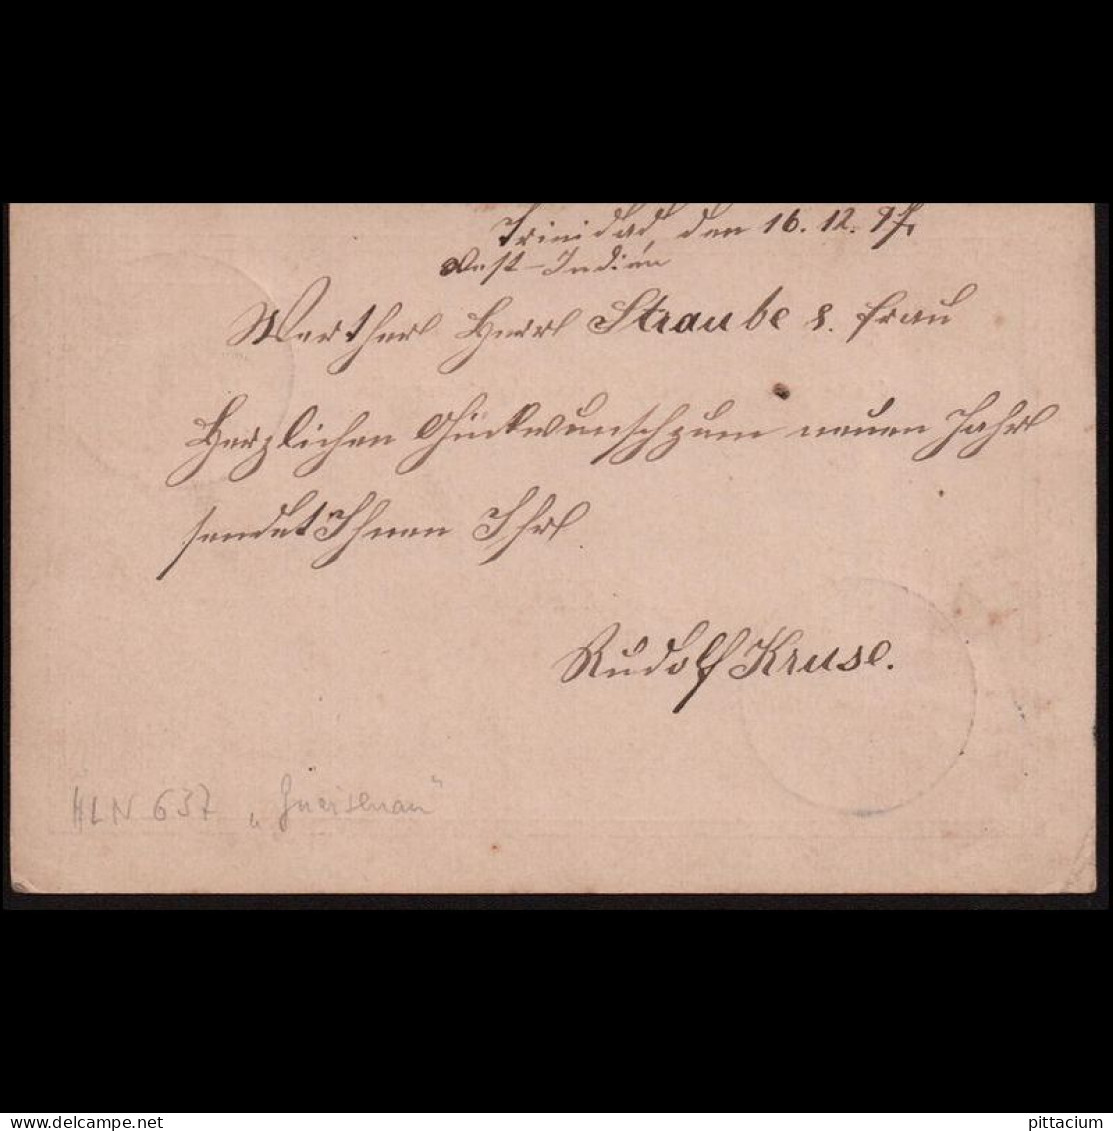 Trinidad, den 16.12.97.
West-Indien
Werther Herr Straube & Frau
Herzlichen Glückwunsch zum neuen Jahr
sendet Ihnen Ihr
Rudolf Kruse.
HLN 637 „Gneisenau"
www.delcampe.net
pittacium